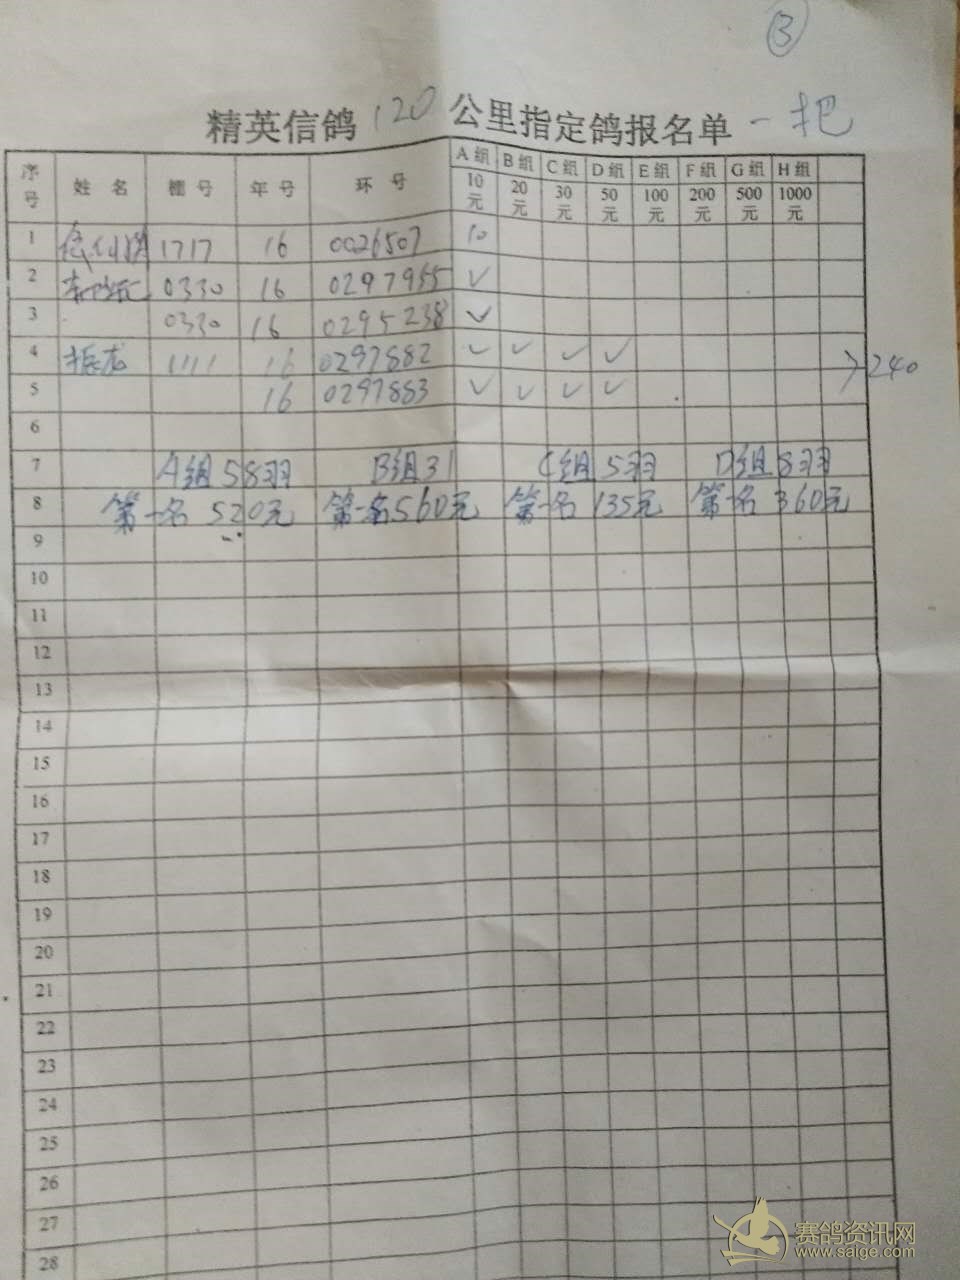 ③
精英信鸽 120 公里指定鸽报名单 一把
序号 姓名 棚号 年号 环号 A组 B组 C组 D组 E组 F组 G组 H组
10元 20元 30元 50元 100元 200元 500元 1000元
1 1717 16 0026507 10
2 0330 16 0297955 ✓
3 0330 16 0295238 ✓
4 振龙 1111 16 0297882 ✓ ✓ ✓ ✓
5 16 0297883 ✓ ✓ ✓ ✓
>240
6
7 A组58羽 B组31 C组5羽 D组8羽
8 第一名 520元 第一名560元 第一名 135元 第一名 360元
9
10
11
12
13
14
15
16
17
18
19
20
21
22
23
24
25
26
27
28
赛鸽资讯网
www.saige.com